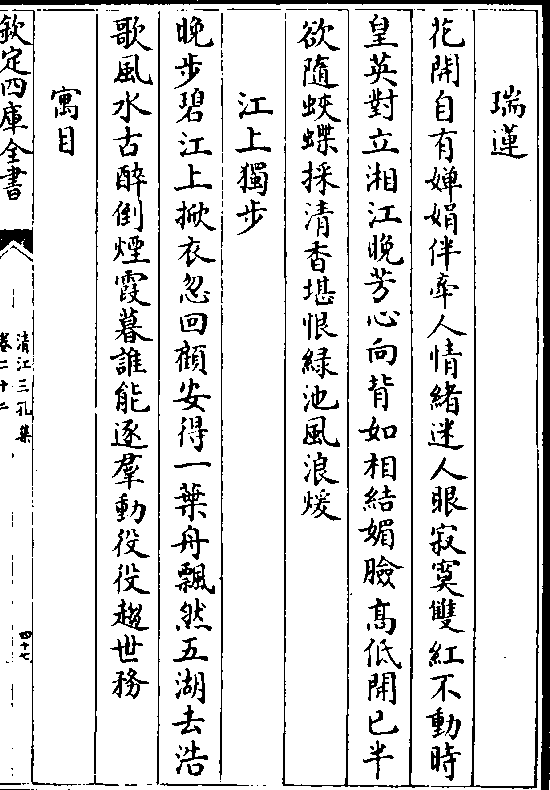 瑞蓮
花開自有嬋娟伴牽人情緒迷人眼寂寞雙紅不動時
皇英對立湘江晚芳心向背如相結媚臉髙低開已半
欲隨蛺蝶採清香堪恨緑池風浪煖
江上獨步
晚步碧江上掀衣忽回顧安得一葉舟飄然五湖去浩
歌風水古醉倒煙霞暮誰能逐羣動役役趨世務
寓目
欽定四庫全書
清江三孔集
卷二十二
四十七